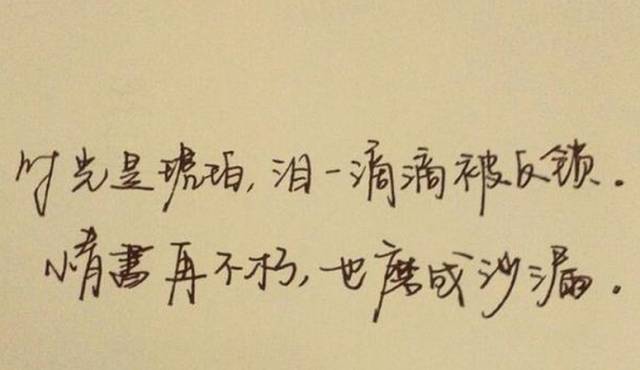 时光是琥珀,泪一滴滴被反锁.
情書再不朽,也磨成沙漏.